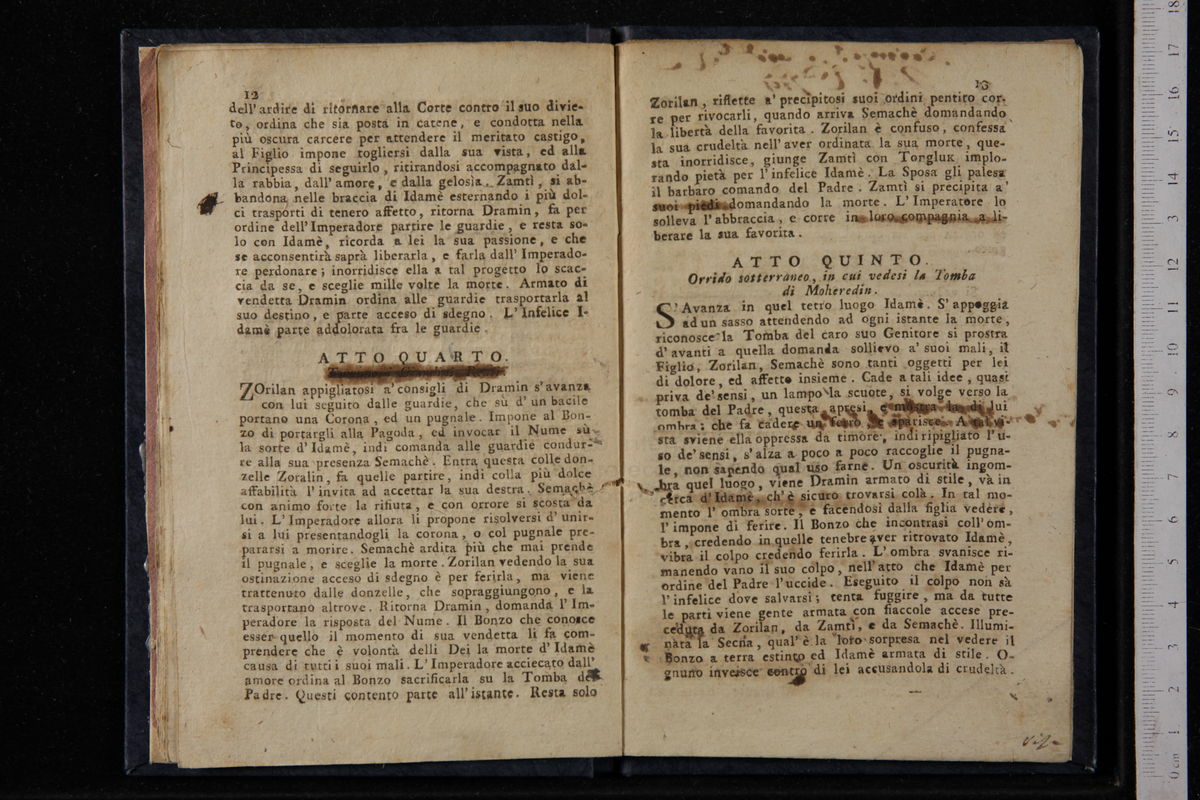 12
dell'ardire di ritornare alla Corte contro il suo divie-
to, ordina che sia posta in catene, e condotta nella
più oscura carcere per attendere il meritato castigo,
al Figlio impone togliersi dalla sua vista, ed alla
Principessa di seguirlo, ritirandosi accompagnato dal-
la rabbia, dall'amore, e dalla gelosia. Zamtì, si ab-
bandona nelle braccia di Idamè esternando i più dol-
ci trasporti di tenero affetto, ritorna Dramin, fa per
ordine dell'Imperadore partire le guardie, e resta so-
lo con Idamè, ricorda a lei la sua passione, e che
se acconsentirà saprà liberarla, e farla dall'Imperado-
re perdonare; inorridisce ella a tal progetto lo scac-
cia da se, e sceglie mille volte la morte. Armato di
vendetta Dramin ordina alle guardie trasportarla al
suo destino, e parte acceso di sdegno. L'Infelice I-
damè parte addolorata fra le guardie.
ATTO QUARTO.
ZOrilan appigliatosi a'consigli di Dramin s'avanza
con lui seguito dalle guardie, che sù d'un bacile
portano una Corona, ed un pugnale. Impone al Bon-
zo di portargli alla Pagoda, ed invocar il Nume sù
la sorte d'Idamè, indi comanda alle guardie condur-
re alla sua presenza Semachè. Entra questa colle don-
zelle Zoralin, fa quelle partire, indi colla più dolce
affabilità l'invita ad accettar la sua destra. Semachè
con animo forte la rifiuta, e con orrore si scosta da
lui. L'Imperadore allora li propone risolversi d'unir-
si a lui presentandogli la corona, o col pugnale pre-
pararsi a morire. Semachè ardita più che mai prende
il pugnale, e sceglie la morte. Zorilan vedendo la sua
ostinazione acceso di sdegno è per ferirla, ma viene
trattenuto dalle donzelle, che sopraggiungono, e la
trasportano altrove. Ritorna Dramin, domanda l'Im-
peradore la risposta del Nume. Il Bonzo che conosce
esser quello il momento di sua vendetta li fa com-
prendere che è volontà delli Dei la morte d'Idamè
causa di tutti i suoi mali. L'Imperadore acciecato dall'
amore ordina al Bonzo sacrificarla su la Tomba del
Padre. Questi contento parte all'istante. Resta solo
13
Zorilan, riflette a' precipitosi suoi ordini pentito cor-
re per rivocarli, quando arriva Semachè domandando
la libertà della favorita. Zorilan è confuso, confessa
la sua crudeltà nell'aver ordinata la sua morte, que-
sta inorridisce, giunge Zamtì con Torgluk implo-
rando pietà per l'infelice Idamè. La Sposa gli palesa
il barbaro comando del Padre. Zamtì si precipita a'
suoi piedi domandando la morte. L'Imperatore lo
solleva l'abbraccia, e corte in loro compagnia a li-
berare la sua favorita.
ATTO QUINTO.
Orrido sotterraneo, in cui vedesi la Tomba
di Moheredin.
S'Avanza in quel tetro luogo Idamè. S'appoggia
ad un sasso attendendo ad ogni istante la morte,
riconosce la Tomba del caro suo Genitore si prostra
d'avanti a quella domanda sollievo a' suoi mali, il
Figlio, Zorilan, Semachè sono tanti oggetti per lei
di dolore, ed affetto insieme. Cade a tali idee, quasi
priva de'sensi, un lampo la scuote, si volge verso la
tomba del Padre, questa apresi, e mostra la di lui
ombra; che fa cadere un ferro, e sparisce. A tal vi-
sta sviene ella oppressa da timore, indi ripigliato l'u-
so de'sensi, s'alza a poco a poco raccoglie il pugna-
le, non sapendo qual uso farne. Un oscurità ingom-
bra quel luogo, viene Dramin armato di stile, và in
cerca d'Idamè, ch'è sicuro trovarsi colà. In tal mo-
mento l'ombra sorte, e facendosi dalla figlia vedere,
l'impone di ferire. Il Bonzo che incontrasi coll'om-
bra, credendo in quelle tenebre aver ritrovato Idamè,
vibra il colpo credendo ferirla. L'ombra svanisce ri-
manendo vano il suo colpo, nell'atto che Idamè per
ordine del Padre l'uccide. Eseguito il colpo non sà
l'infelice dove salvarsi; tenta fuggire, ma da tutte
le parti viene gente armata con fiaccole accese pre-
ceduta da Zorilan, da Zamtì, e da Semachè. Illumi-
nata la Scena, qual'è la loro sorpresa nel vedere il
Bonzo a terra estinto ed Idamè armata di stile. O-
gnuno inveisce contro di lei accusandola di crudeltà.